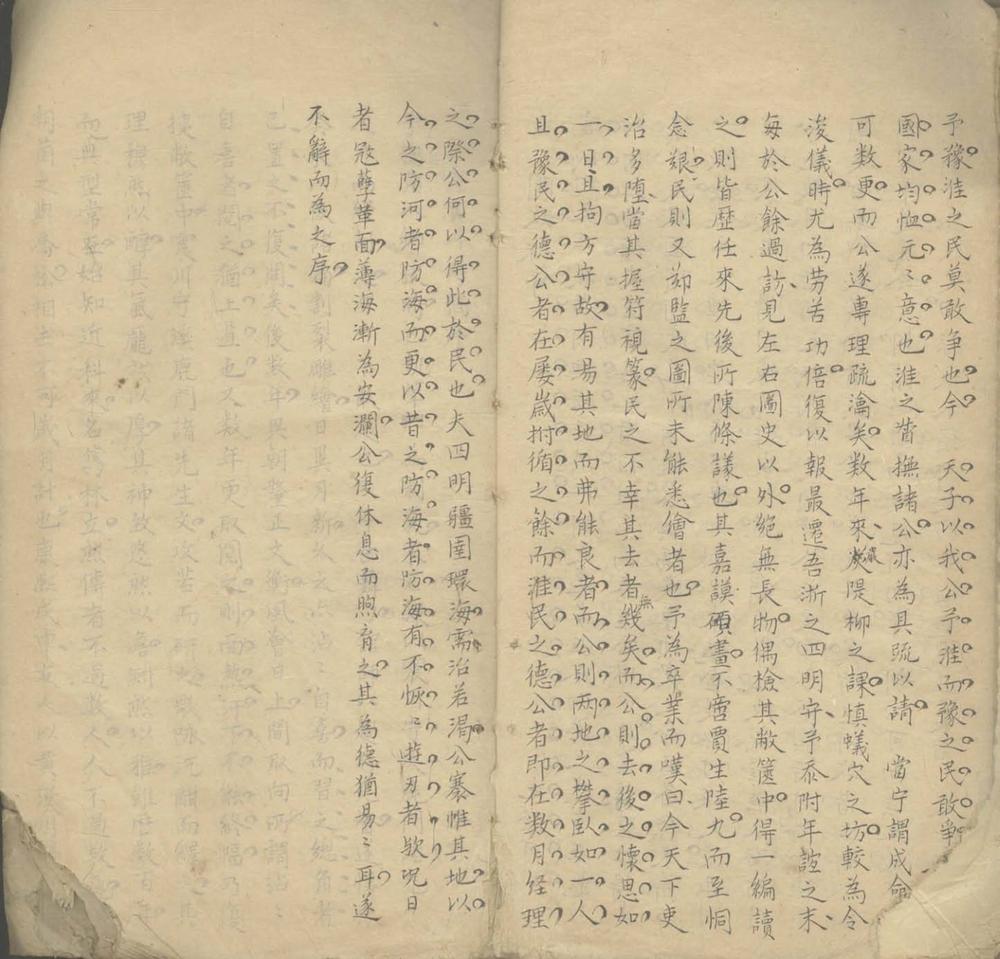 予豫淮之民莫敢争也今　天子以我公予淮而豫之民敢爭
國家均恤元々意也淮之諸撫諸公亦為具疏以請　當宁謂成命
可数更而公遂專理疏瀹矣数年來歲隄柳之課慎蟻穴之坊較為令
浚儀時尤為劳苦功倍復以報最遷吾浙之四明守予忝附年誼之末
每於公餘過訪見左右圖史以外絕無長物偶檢其敝篋中得一編讀
之則皆歷任來先後所陳條議也其嘉謨碩畫不啻賈生陸九而至恫
念艱民則又鄭監之圖所未能悉僧者也予為卒業而嘆曰今天下吏
治多墮當其握符視篆民之不幸其去者無幾矣而公則去後之懷思如
一日且拘方守故有易其地而弗能良者而公則两地之攀臥如一人
且豫民之德公者在屡歲拊循之餘而淮民之德公者即在数月经理
之際公何以得此於民也夫四明疆圉環海需治若渴公褰惟其地以
今之防河者防海而更以昔之防海者防海有不恢々遊刃者欤况日
者寇孽革面薄海漸為安瀾公復休息而煦育之其為德猶易々耳遂
不辭而為之序